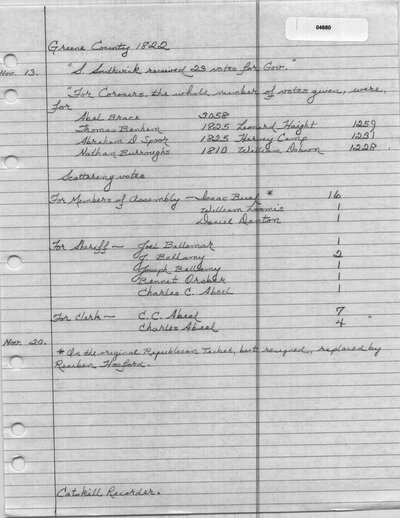 04680
Greene County 1822
Nov. 13. "S. Southwick received 23 votes for Gov."
"For Coroners, the whole number of votes given, were,
for
Abel Brace 3058
Thomas Benham 1825 Leonard Haight 1259
Abraham D. Spoor 1825 Harvey Camp 1231
Nathan Burroughs 1810 William Dobson 1228
Scattering votes
For Members of Assembly — Isaac * 16
William Loomis 1
Daniel Denton 1
For Sheriff — Joel Ballamar 1
J. Bellamy 2
Joseph Bellamy 1
Bennet Orsber 1
Charles C. Abeel 1
For Clerk — C. C. Abeel 7
Charles Abeel 4 "
Nov. 20.
* On the original Republican Ticket, but resigned, replaced by
Reuben Hosford.
Catskill Recorder.